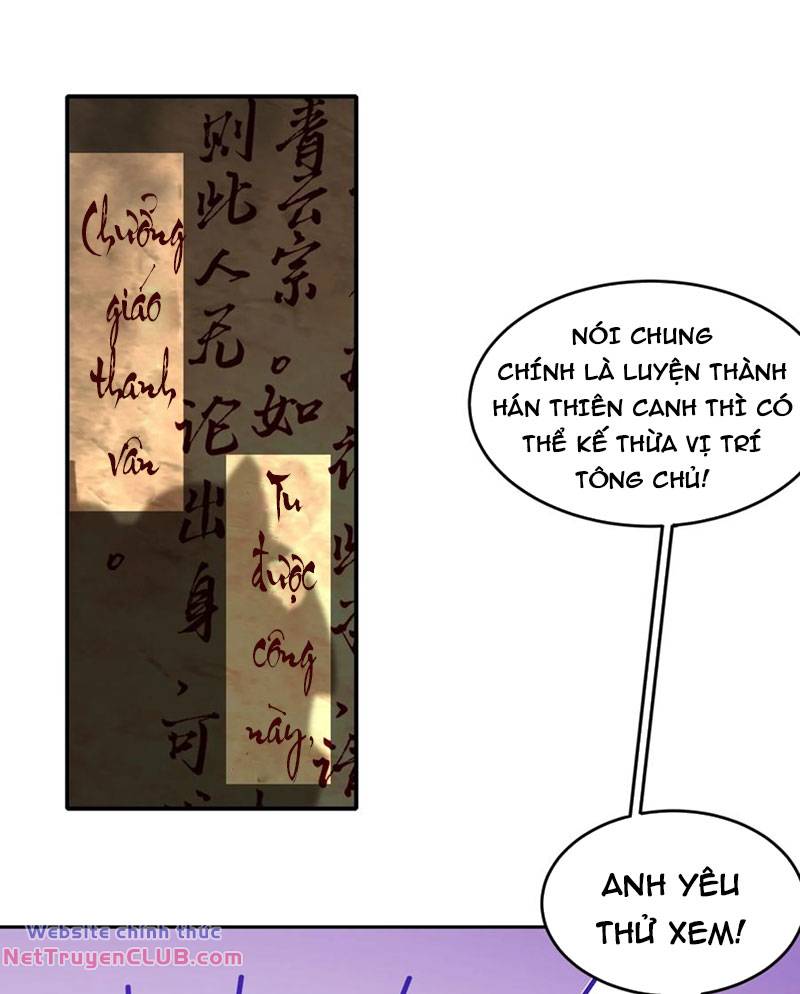 青云宗。如
则此人无论出身、可
Chưởng
giáo
thanh
vân
Tu
được
công
này,
NÓI CHUNG
CHÍNH LÀ LUYỆN THÀNH
HÁN THIÊN CANH THÌ CÓ
THỂ KẾ THỪA VỊ TRÍ
TÔNG CHỦ!
ANH YÊU
THỬ XEM!
Website chính thức
NetTruyenCLUB.com